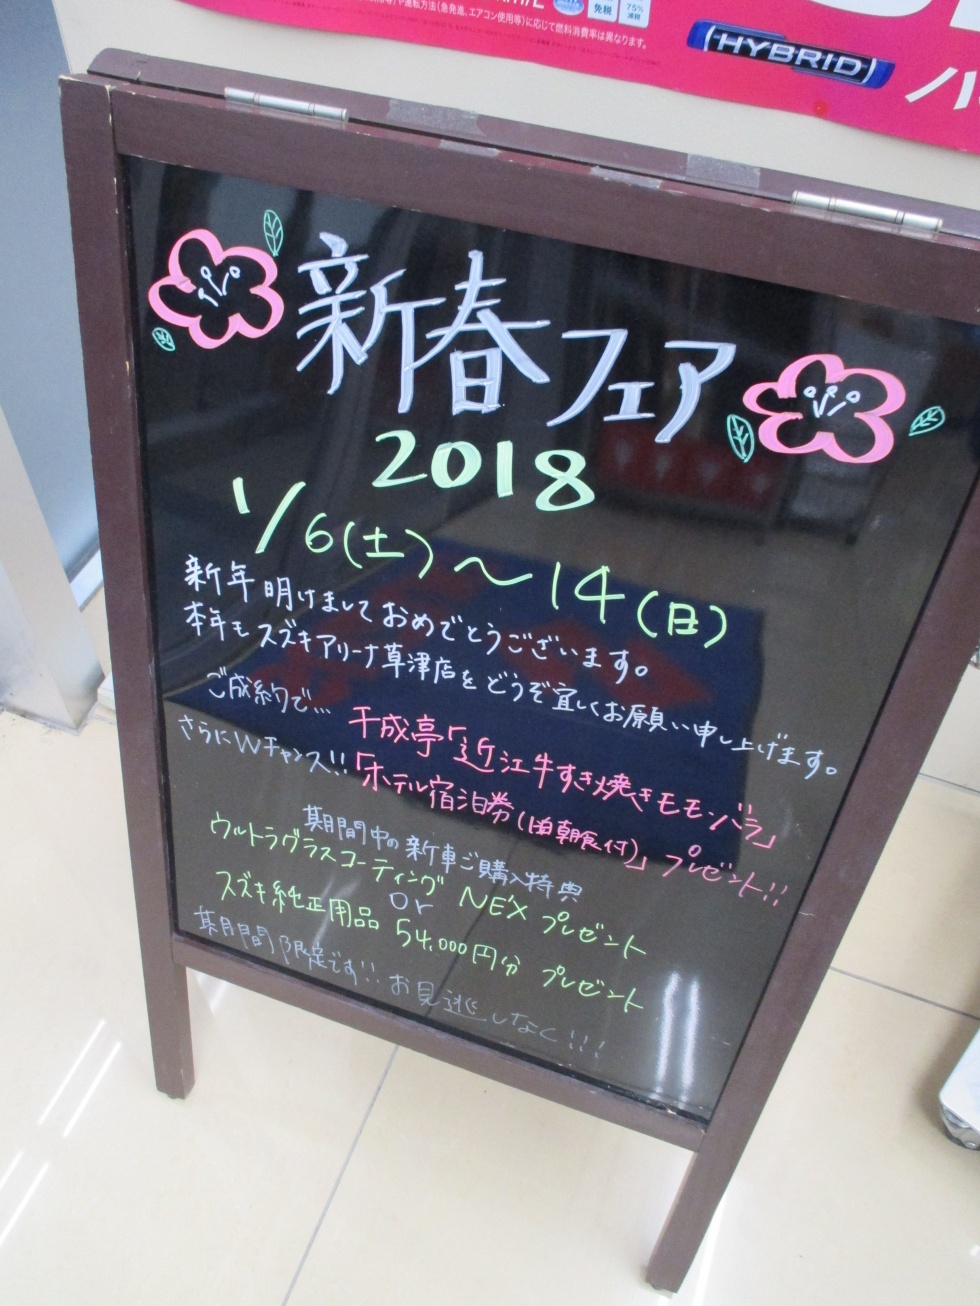 運転方法(急発進、エアコン使用等)に応じて燃料消費率は異なります。
免税
75%
減税
HYBRID
新春フェア
2018
1/6(土)〜14(日)
新年明けましておめでとうございます。
本年もスズキアリーナ草津店をどうぞ宜しくお願い申し上げます。
ご成約で…
千成亭「近江牛すき焼きモモ・バラ」
さらにWチャンス!!
「ホテル宿泊券(1泊朝食付)」プレゼント!!
期間中の新車ご購入特典
ウルトラグラスコーティング NE'X プレゼント
or
スズキ純正用品 54,000円分 プレゼント
期間限定です!! お見逃しなく!!!